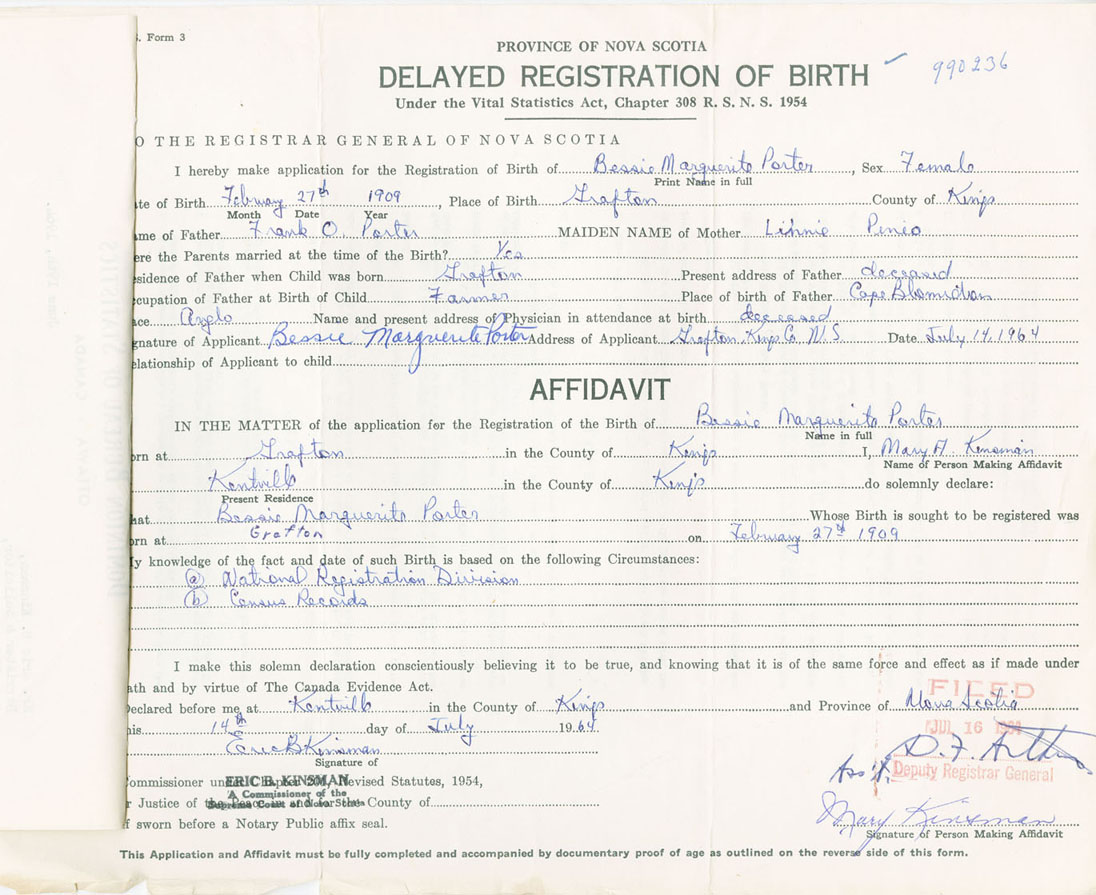 . Form 3
PROVINCE OF NOVA SCOTIA
DELAYED REGISTRATION OF BIRTH 990236
Under the Vital Statistics Act, Chapter 308 R. S. N. S. 1954
O THE REGISTRAR GENERAL OF NOVA SCOTIA
I hereby make application for the Registration of Birth of Bessie Marguerite Porter, Sex Female
Print Name in full
te of Birth February 27th 1909, Place of Birth Grafton County of Kings
Month Date Year
me of Father Frank O. Porter MAIDEN NAME of Mother Linnie Pineo
ere the Parents married at the time of the Birth? Yes
sidence of Father when Child was born Grafton Present address of Father deceased
cupation of Father at Birth of Child Farmer Place of birth of Father Cape Blomidon
ce Anglo Name and present address of Physician in attendance at birth deceased
gnature of Applicant Bessie Marguerite Porter Address of Applicant Grafton, Kings Co. N. S. Date July 14, 1964
elationship of Applicant to child
AFFIDAVIT
IN THE MATTER of the application for the Registration of the Birth of Bessie Marguerite Porter
Name in full
rn at Grafton in the County of Kings I, Mary A. Kinsman
Name of Person Making Affidavit
Kentville in the County of Kings do solemnly declare:
Present Residence
hat Bessie Marguerite Porter Whose Birth is sought to be registered was
rn at Grafton on February 27th 1909
y knowledge of the fact and date of such Birth is based on the following Circumstances:
(a) National Registration Division
(b) Census Records
I make this solemn declaration conscientiously believing it to be true, and knowing that it is of the same force and effect as if made under
ath and by virtue of The Canada Evidence Act.
FILED
eclared before me at Kentville in the County of Kings and Province of Nova Scotia
his 14th day of July 1964
JUL 16
Eric B Kinsman
Signature of
D. F.
Ass't. Deputy Registrar General
ommissioner under Chapter Revised Statutes, 1954,
ERIC B. KINSMAN
A Commissioner of the
Supreme Court of Nova Scotia
r Justice of the Peace in and for the County of
Mary Kinsman
f sworn before a Notary Public affix seal.
Signature of Person Making Affidavit
This Application and Affidavit must be fully completed and accompanied by documentary proof of age as outlined on the reverse side of this form.